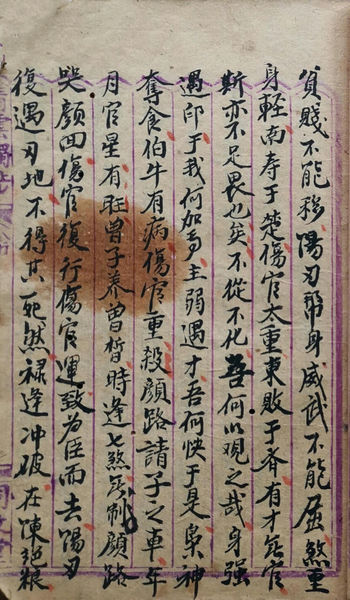 貧賤不能移陽刃幫身威武不能屈煞重
身輕南寿于楚傷官太重東敗于齐有才無官
斯亦不足畏也矣不從不化吾何以观之哉身强
遇印于我何加多主弱遇才吾何快于是枭神
奪食伯牛有病傷官重殺顔路請子之車年
月官星有旺曾子养曾皙時逢七煞無制顔路
哭顔回傷官復行傷官運致为臣而去陽刃
復遇刃地不得其死然禄逢冲破在陳絕粮